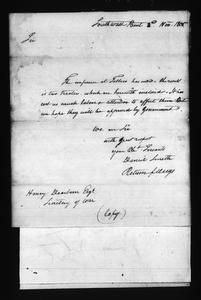 Southwest Point 2d Nov. 1805
Sir
The conference at Tellico has ended the result
is two treaties, which are herewith enclosed. It has
cost us much labor & attention to effect them but
we hope they will be approved by Government
We are Sir
with great respect
your Obt Servants
Daniel Smith
Return J. Meigs
Henry Dearborn Esqr
Secretary of War
(Copy)